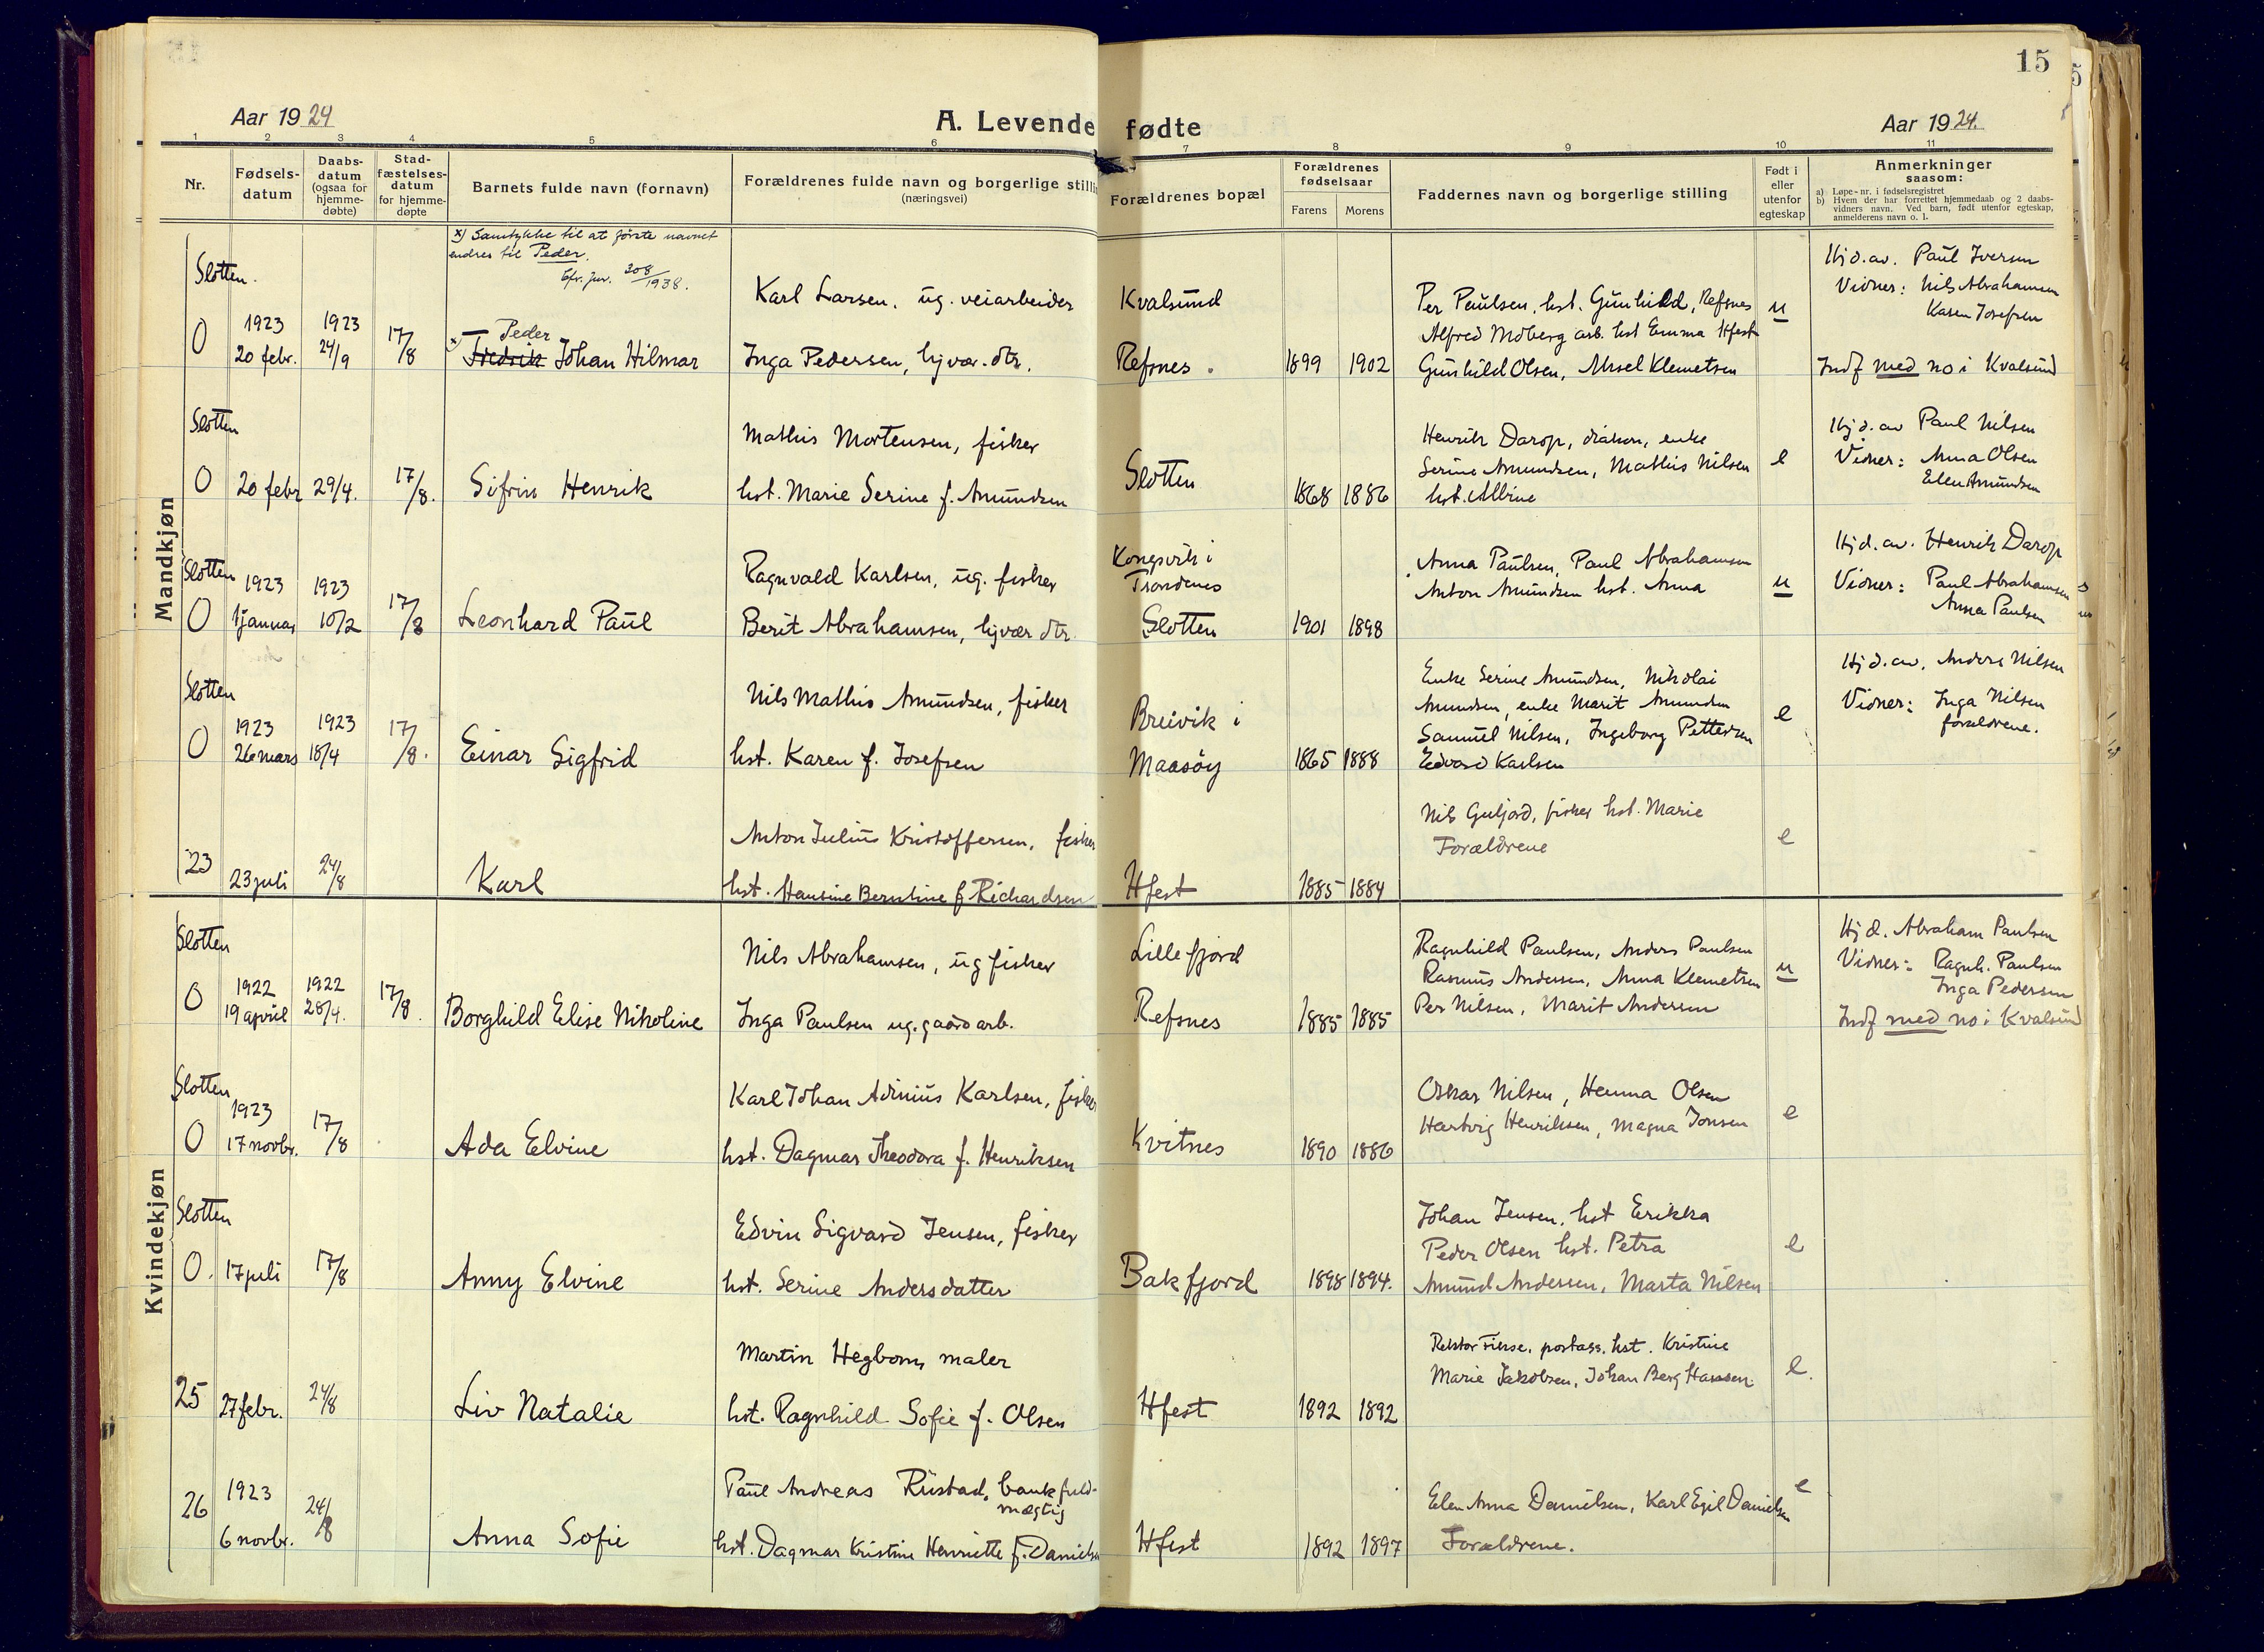 15
Aar 1924
A. Levende fødte
Aar 1924.
1 2 3 4 5 6 7 8 9 10 11
Nr.
Fødsels-
datum
Daabs-
datum
(ogsaa for
hjemme-
døbte)
Stad-
fæstelses-
datum
for hjemme-
døpte
Barnets fulde navn (fornavn)
Forældrenes fulde navn og borgerlige stilli
(næringsvei)
Forældrenes bopæl
Forældrenes
fødselsaar
Farens Morens
Faddernes navn og borgerlige stilling
Født i
eller
utenfor
egteskap
Anmerkninger
saasom:
a) Løpe-nr. i fødselsregistret
b) Hvem der har forrettet hjemmedaab og 2 daabs-
vidners navn. Ved barn, født utenfor egteskap,
anmelderens navn o. l.
Mandkjøn
x) Samtykke til at første navnet
endres til Peder.
Cfr. jur. 208/1938.
Slotten.
0
1923
20 febr.
1923
24/9
17/8
x) Peder
Fredrik Johan Hilmar
Karl Larsen, ug. veiarbeider
Inga Pedersen, hjvær. dtr.
Kvalsund
Refsnes.
1899 1902
Per Paulsen, hst. Gunhild, Refsnes
Alfred Moberg arb. hst Emma Hfest
Gunhild Olsen, Aksel Klemetsen
u
Hjd. av. Paul Iversen
Vidner: Nils Abrahamsen
Karen Josefsen
Indf med no i Kvalsund
Slotten
0
20 febr
29/4.
17/8.
Sifrin Henrik
Mathis Mortensen, fisker
hst. Marie Serine f. Amundsen
Slotten
1868 1886
Henrik Darop, diakon, enke
Serine Amundsen, Mathis Nilsen
hst. Albine
e
Hjd. av Paul Nilsen
Vidner: Anna Olsen
Elen Amundsen
Slotten
0
1923
1 januar
1923
10/2
17/8
Leonhard Paul
Ragnvald Karlsen, ug. fisker
Berit Abrahamsen, hjvær dtr.
Kongsvik i
Trondenes
Slotten
1901 1898
Anna Paulsen, Paul Abrahamsen
Anton Amundsen hst. Anna
u
Hjd. av. Henrik Darop
Vidner: Paul Abrahamsen
Anna Paulsen
Slotten
0
1923
26 mars
1923
18/4
17/8.
Einar Sigfrid
Nils Mathis Amundsen, fisker
hst. Karen f. Josefsen
Breivik i
Maasøy
1865 1888
Enke Serine Amundsen, Nikolai
Amundsen, enke Marit Amundsen
Samuel Nilsen, Ingeborg Pettersen
Edvard Karlsen
e
Hjd. av. Anders Nilsen
Vidner: Inga Nilsen
forældrene.
23
23 juli
24/8
Karl
Anton Julius Kristoffersen, fisker
hst. Hansine Berntine f Richardsen
Hfest
1885 1884
Nils Guljord, fisker hst. Marie
Forældrene
e
Kvindekjøn
Slotten
0
1922
19 april
1922
28/4.
17/8.
Borghild Elise Nikoline
Nils Abrahamsen, ug fisker
Inga Paulsen ug. gaardarb.
Lillefjord
Refsnes
1885 1885
Ragnhild Paulsen, Anders Paulsen
Rasmus Andersen, Anna Klemetsen
Per Nilsen, Marit Andersen
u
Hjd. Abraham Paulsen
Vidner: Ragnh. Paulsen
Inga Pedersen
Indf med no i Kvalsund
Slotten
0
1923
17 novbr.
17/8
Ada Elvine
Karl Johan Adinius Karlsen, fisker
hst. Dagmar Theodora f. Henriksen
Kvitnes
1890 1886
Oskar Nilsen, Henna Olsen
Hartvig Henriksen, Magna Jonsen
e
Slotten
0.
17 juli
17/8
Anny Elvine
Edvin Sigvard Jensen, fisker
hst. Serine Andersdatter
Bakfjord
1898 1894.
Johan Jensen, hst Erikka
Peder Olsen hst. Petra
Amund Andersen, Marta Nilsen
e
25
27 febr.
24/8
Liv Natalie
Martin Hegbom, maler
hst. Ragnhild Sofie f. Olsen
Hfest
1892 1892
postass. hst. Kristine
Marie Jakobsen, Johan Berg Hansen
e.
26
1923
6 novbr.
24/8
Anna Sofie
Paul Andreas Rustad, bankfuld-
mægtig
hst. Dagmar Kristine Henriette f. Daniels
Hfest
1892 1897
Elen Anna Danielsen, Karl Egil Danielsen
Forældrene.
e